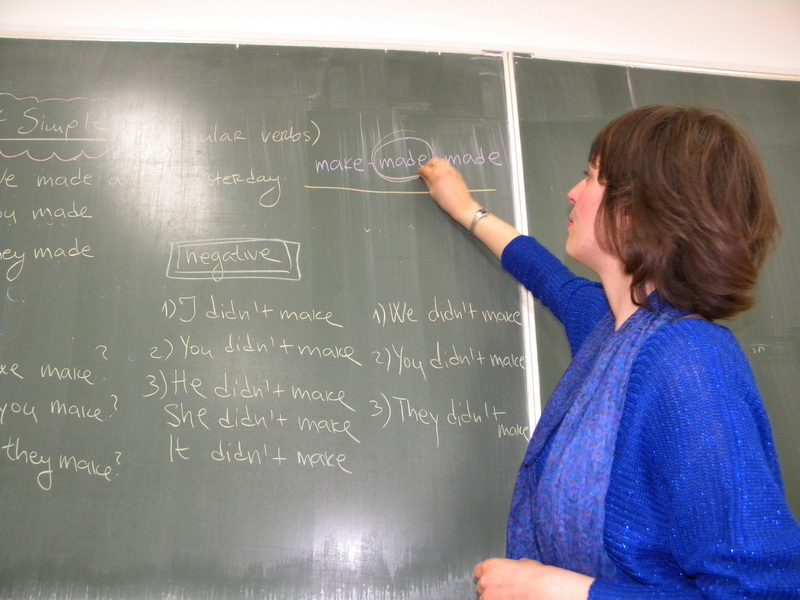 Simple
verbs)
make - made - made
We made a
you made
they made
negative
1) I didn't make
2) You didn't make
3) He didn't make
She didn't make
It didn't make
1) We didn't make
2) You didn't make
3) They didn't make
make?
you make?
they make?